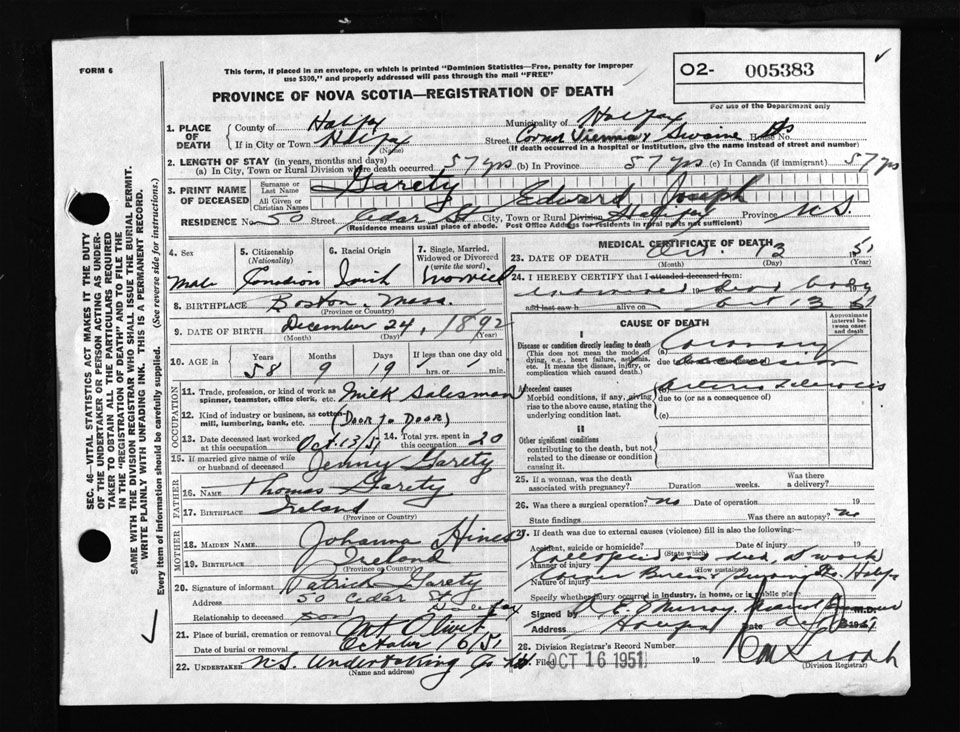 FORM 6
This form, if placed in an envelope, on which is printed "Dominion Statistics—Free, penalty for improper
use $300," and properly addressed will pass through the mail "FREE"
O2- 005383
For use of the Department only
PROVINCE OF NOVA SCOTIA—REGISTRATION OF DEATH
1. PLACE OF DEATH
County of Halifax Municipality of Halifax
If in City or Town Halifax (Name) Street Cornor Vienna & Swaine Sts House No.
(If death occurred in a hospital or institution, give the name instead of street and number)
2. LENGTH OF STAY (in years, months and days)
(a) In City, Town or Rural Division where death occurred 57 yrs (b) In Province 57 yrs (c) In Canada (if immigrant) 57 yrs
3. PRINT NAME OF DECEASED
Surname or Last Name Garety
All Given or Christian Names Edward Joseph
RESIDENCE No. 50 Street Cedar St City, Town or Rural Division Halifax Province NS
(Residence means usual place of abode. Post Office Address for residents in rural parts not sufficient)
4. Sex Male
5. Citizenship (Nationality) Canadian
6. Racial Origin Irish
7. Single, Married, Widowed or Divorced (write the word) Married
8. BIRTHPLACE Boston, Mass.
(Province or Country)
9. DATE OF BIRTH December 24, 1892
(Month) (Day) (Year)
10. AGE in Years 58 Months 9 Days 19 If less than one day old hrs. or min.
OCCUPATION
11. Trade, profession, or kind of work as spinner, teamster, office clerk, etc. Milk Salesman
12. Kind of industry or business, as cotton-mill, lumbering, bank, etc. (Door to Door)
13. Date deceased last worked at this occupation Oct. 13/51 14. Total yrs. spent in this occupation 20
15. If married give name of wife or husband of deceased Jenny Garety
FATHER
16. NAME Thomas Garety
17. BIRTHPLACE Ireland
(Province or Country)
MOTHER
18. MAIDEN NAME Johanna Hines
19. BIRTHPLACE Ireland
(Province or Country)
20. Signature of informant Patrick Garety
Address 50 Cedar St Halifax
Relationship to deceased son
21. Place of burial, cremation or removal Mt Olivet
Date of burial or removal October 16/51
22. UNDERTAKER N.S. Undertaking Co Ltd
(Name and address)
MEDICAL CERTIFICATE OF DEATH
23. DATE OF DEATH Oct. 13 51
(Month) (Day) (Year)
24. I HEREBY CERTIFY that I attended deceased from:
19 dead body
and last saw h alive on Oct 13 51
CAUSE OF DEATH
Approximate interval between onset and death
I
Disease or condition directly leading to death
(This does not mean the mode of dying, e.g., heart failure, asthenia, etc. It means the disease, injury, or complication which caused death.)
(a) Coronary
due occlusion
Antecedent causes
Morbid conditions, if any, giving rise to the above cause, stating the underlying condition last.
(b) Arterio Sclerosis
due to (or as a consequence of)
(c)
II
Other significant conditions
contributing to the death, but not related to the disease or condition causing it.
25. If a woman, was the death associated with pregnancy? Duration weeks. Was there a delivery?
26. Was there a surgical operation? no Date of operation 19
State findings Was there an autopsy? no
27. If death was due to external causes (violence) fill in also the following:—
Accident, suicide or homicide? (State which) Date of injury 19
Collapsed and died, at work
Manner of injury (How sustained)
Nature of injury
Specify whether injury occurred in industry, in home, or in public place
Signed by Murray M.D.
Address Halifax Date
28. Division Registrar's Record Number
Filed OCT 16 1951 19
(Division Registrar)
SEC. 46—VITAL STATISTICS ACT MAKES IT THE DUTY
OF THE UNDERTAKER OR PERSON ACTING AS UNDER-
TAKER TO OBTAIN ALL THE PARTICULARS REQUIRED
IN THE "REGISTRATION OF DEATH" AND TO FILE THE
SAME WITH THE DIVISION REGISTRAR WHO SHALL ISSUE THE BURIAL PERMIT.
WRITE PLAINLY WITH UNFADING INK. THIS IS A PERMANENT RECORD.
Every item of information should be carefully supplied. (See reverse side for instructions.)